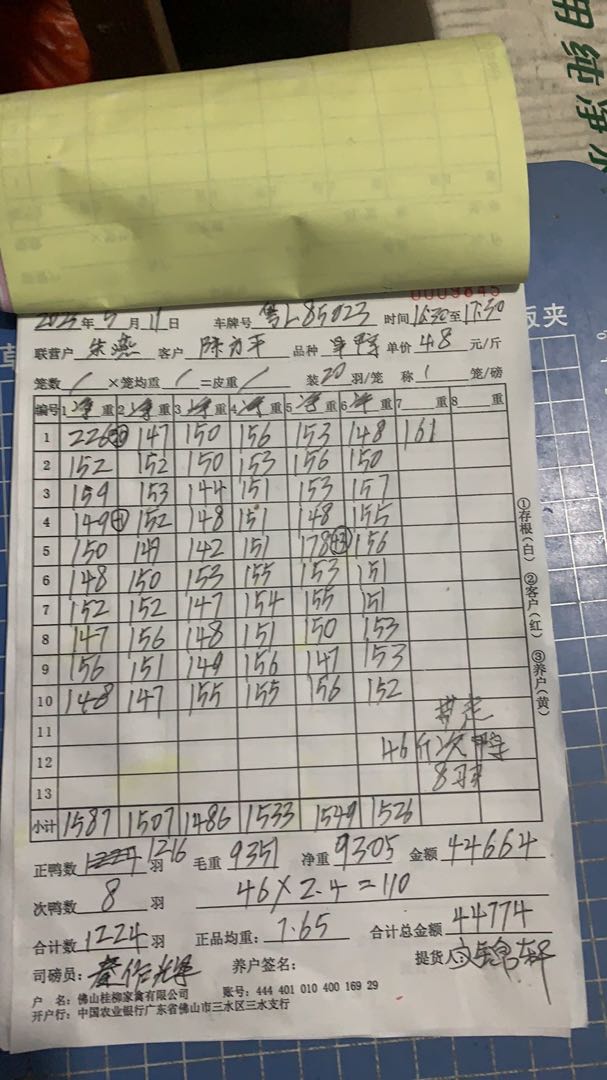 用纯净水
板夹
0003645
2025年5月11日 车牌号 粤L85023 时间16:30至17:30
联营户 朱燕 客户 陈力平 品种 单价 4.8 元/斤
笼数 / ×笼均重 / =皮重 / 装20羽/笼 称 1 笼/磅
编号 1 净重 2 净重 3 净重 4 净重 5 净重 6 净重 7 重 8 重
1 226 147 150 156 153 148 161
2 152 152 150 153 156 150
3 159 153 144 151 153 157
4 149 152 148 151 148 155
5 150 149 142 151 178 156
6 148 150 153 155 153 151
7 152 152 147 154 155 151
8 147 156 148 151 150 153
9 156 151 149 156 147 153
10 148 147 155 155 156 152
11 带走
12 46斤次鸭
13 8羽
小计 1587 1507 1486 1533 1549 1526
①存根(白) ②客户(红) ③养户(黄)
正鸭数 1216 羽 毛重 9351 净重 9305 金额 44664
次鸭数 8 羽 46×2.4=110
合计数 1224 羽 正品均重: 7.65 合计总金额 44774
司磅员: 养户签名: 提货人
户 名: 佛山桂柳家禽有限公司 账号: 444 401 010 400 169 29
开户行: 中国农业银行广东省佛山市三水区三水支行